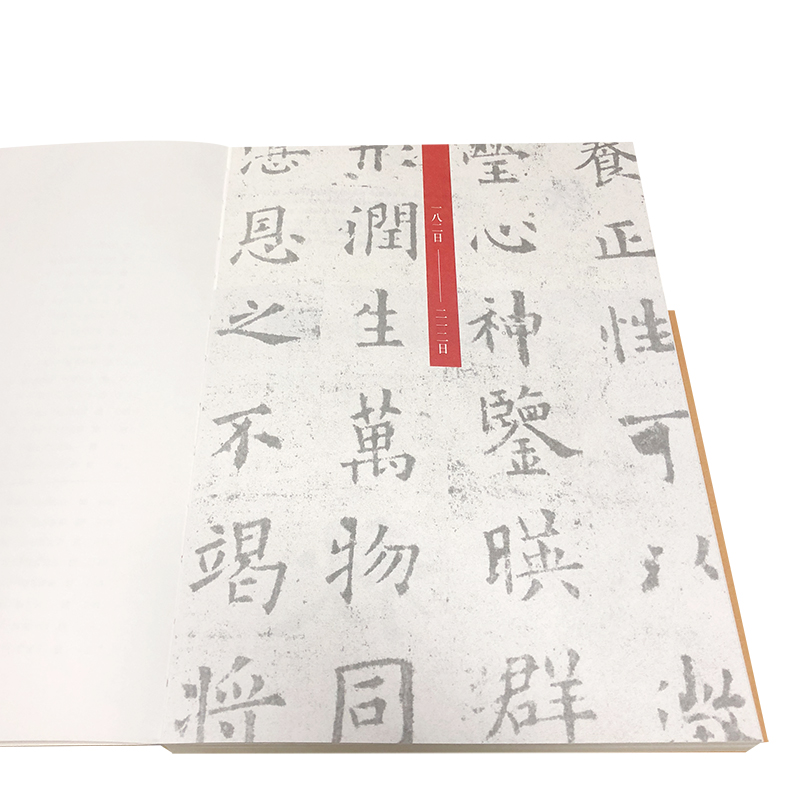 養正性可以澂
瑩心神鑒暎群
一八二日——二一二日
形潤生萬物同
湛恩之不竭將